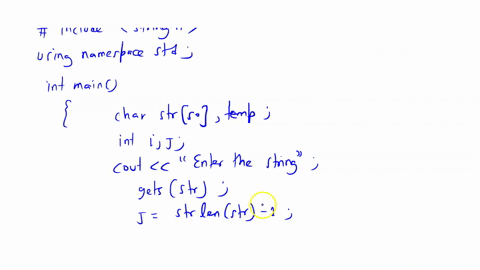 # include <string.h>
using namespace std ;
int main()
{ char str[50] , temp ;
int i, j ;
cout << "Enter the string" ;
gets (str) ;
J = strlen (str) - 1 ;